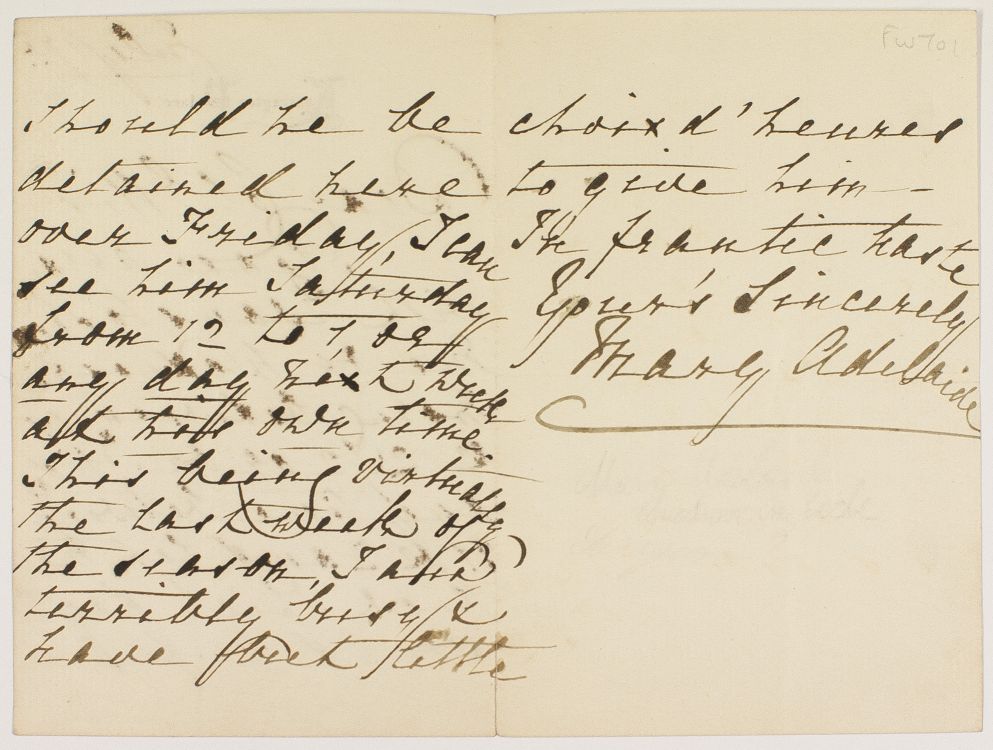 should he be
detained here
over Friday, I can
see him Saturday
from 12 to 1 or
any day next week
at his own time
This being virtually
the last week of
the season, I am
terribly busy &
have but little
FW701
choix d'heures
to give him –
In frantic haste
Your's Sincerely
Mary Adelaide